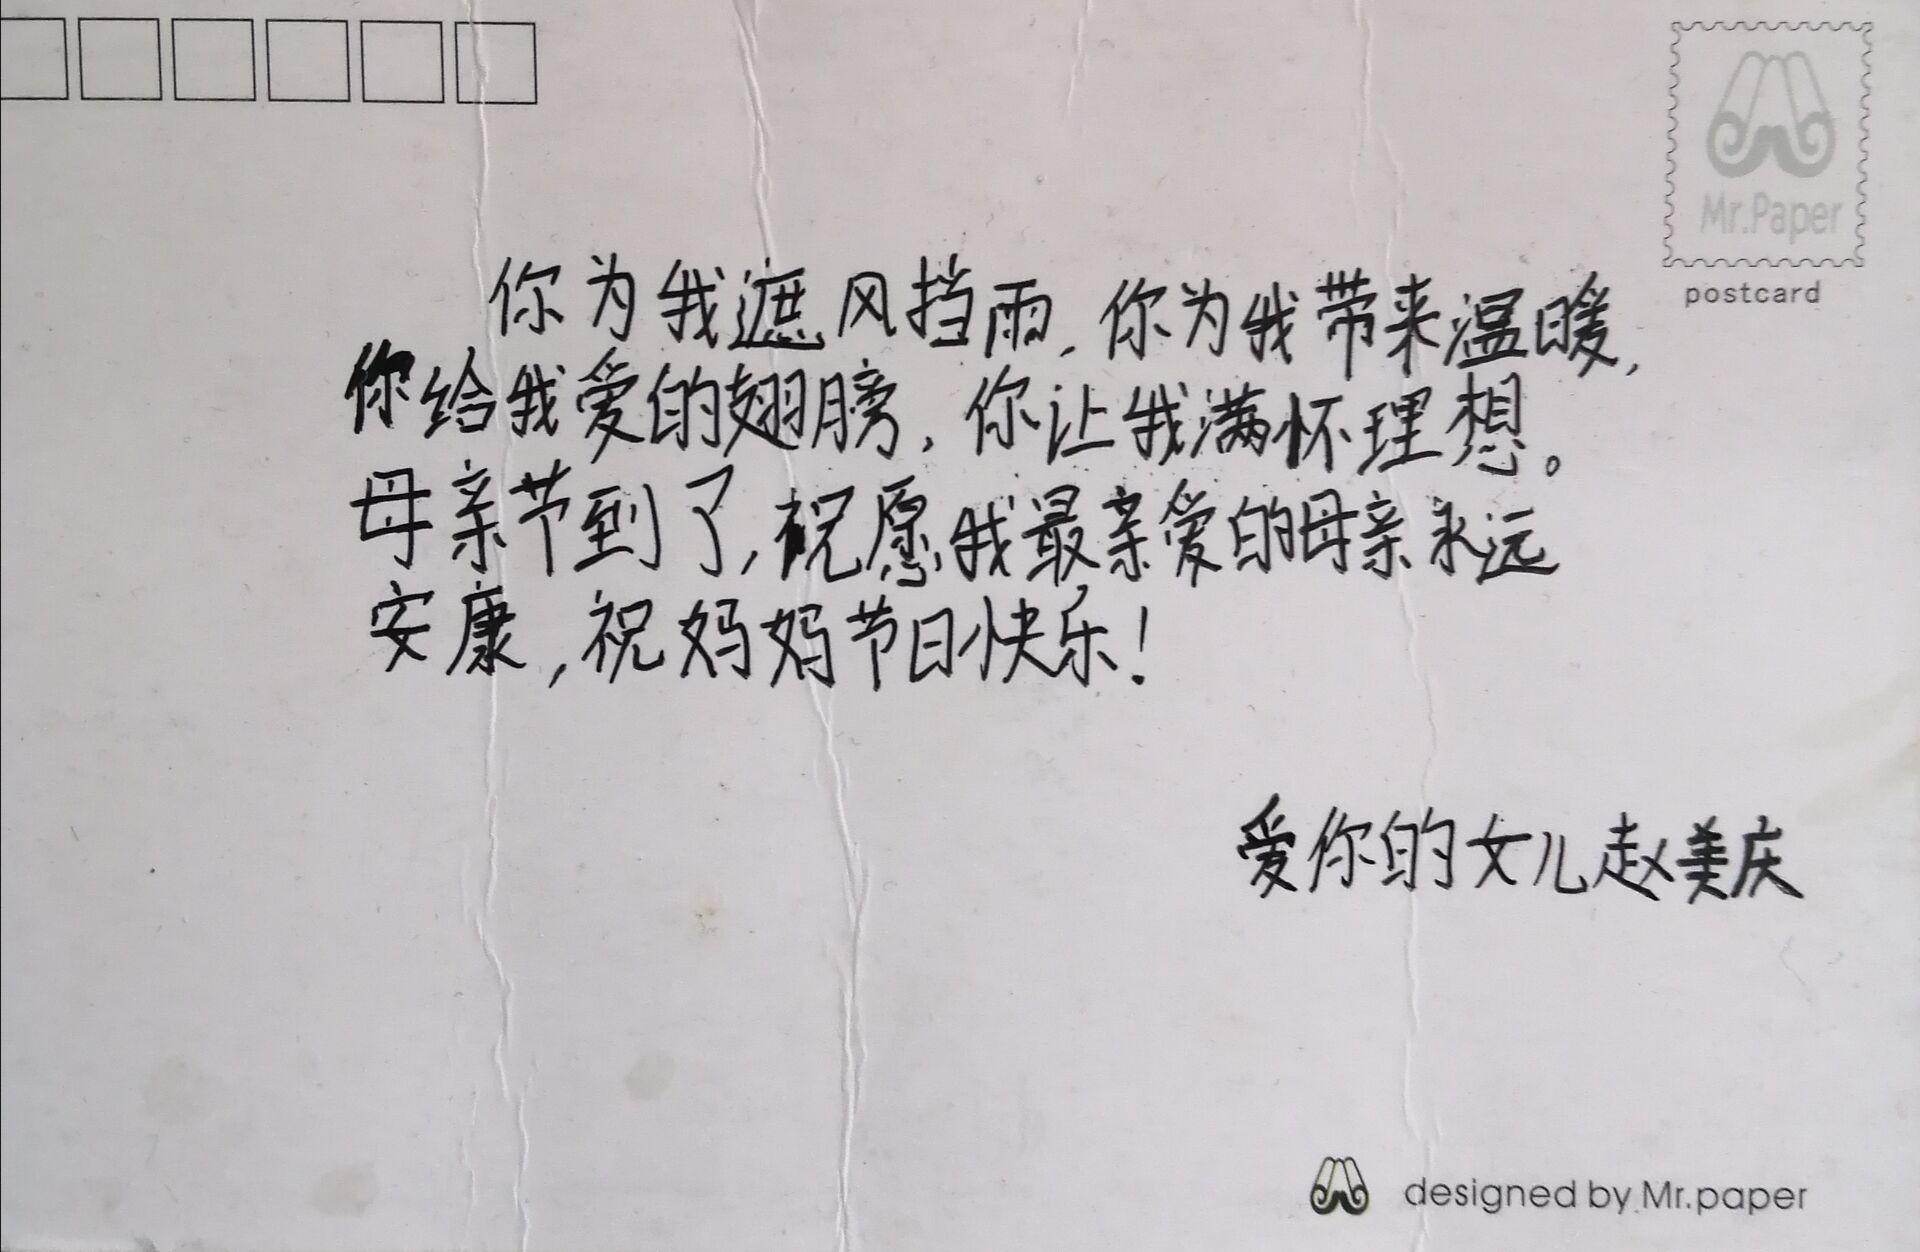 Mr.Paper
postcard
你为我遮风挡雨,你为我带来温暖,
你给我爱的翅膀,你让我满怀理想。
母亲节到了,祝愿我最亲爱的母亲永远
安康,祝妈妈节日快乐!
爱你的女儿赵美庆
designed by Mr.paper